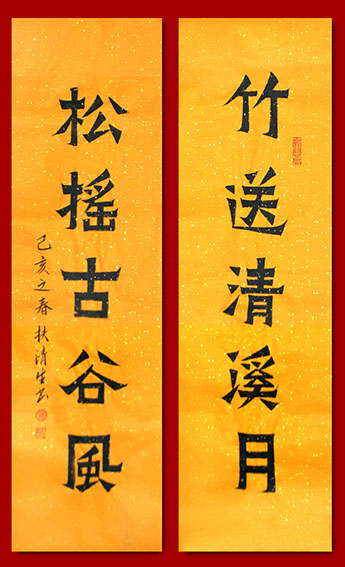 竹送清溪月
松摇古谷风
己亥之春扶清生书